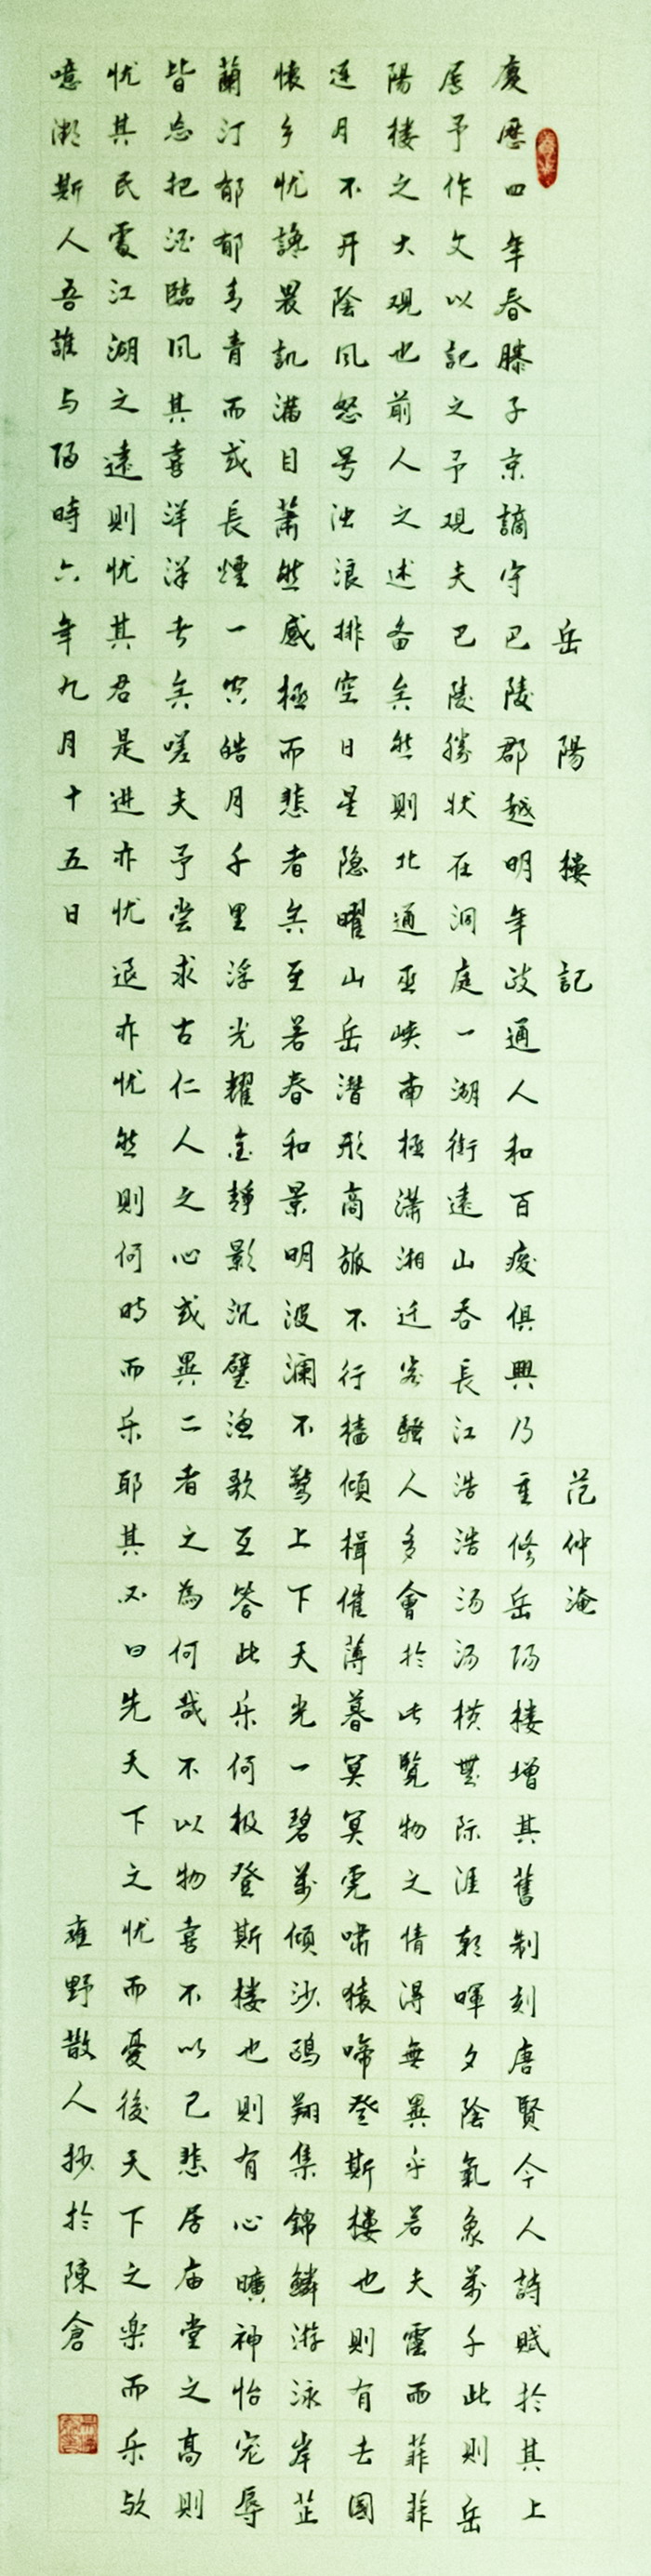 岳陽楼記 范仲淹
慶歷四年春滕子京謫守巴陵郡越明年政通人和百废俱興乃重修岳阳楼增其舊制刻唐賢今人詩赋於其上
属予作文以記之予观夫巴陵勝状在洞庭一湖衔遠山吞長江浩浩汤汤横無际涯朝暉夕陰氣象萬千此則岳
陽楼之大观也前人之述备矣然則北通巫峡南極瀟湘迁客騷人多會於此覽物之情得無異乎若夫霪雨菲菲
连月不开陰风怒号浊浪排空日星隐曜山岳潜形商旅不行檣傾楫催薄暮冥冥虎啸猿啼登斯楼也則有去國
懷乡忧讒畏訊满目萧然感極而悲者矣至若春和景明波澜不驚上下天光一碧萬傾沙鷗翔集錦鱗游泳岸芷
蘭汀郁郁青青而或長煙一空皓月千里浮光耀金静影沉璧渔歌互答此乐何极登斯楼也則有心曠神怡宠辱
皆忘把酒臨风其喜洋洋者矣嗟夫予尝求古仁人之心或異二者之為何哉不以物喜不以己悲居庙堂之高則
忧其民處江湖之遠則忧其君是进亦忧退亦忧然則何时而乐耶其必曰先天下之忧而憂後天下之樂而乐欤
噫微斯人吾誰与归時六年九月十五日 雍野散人抄於陳倉